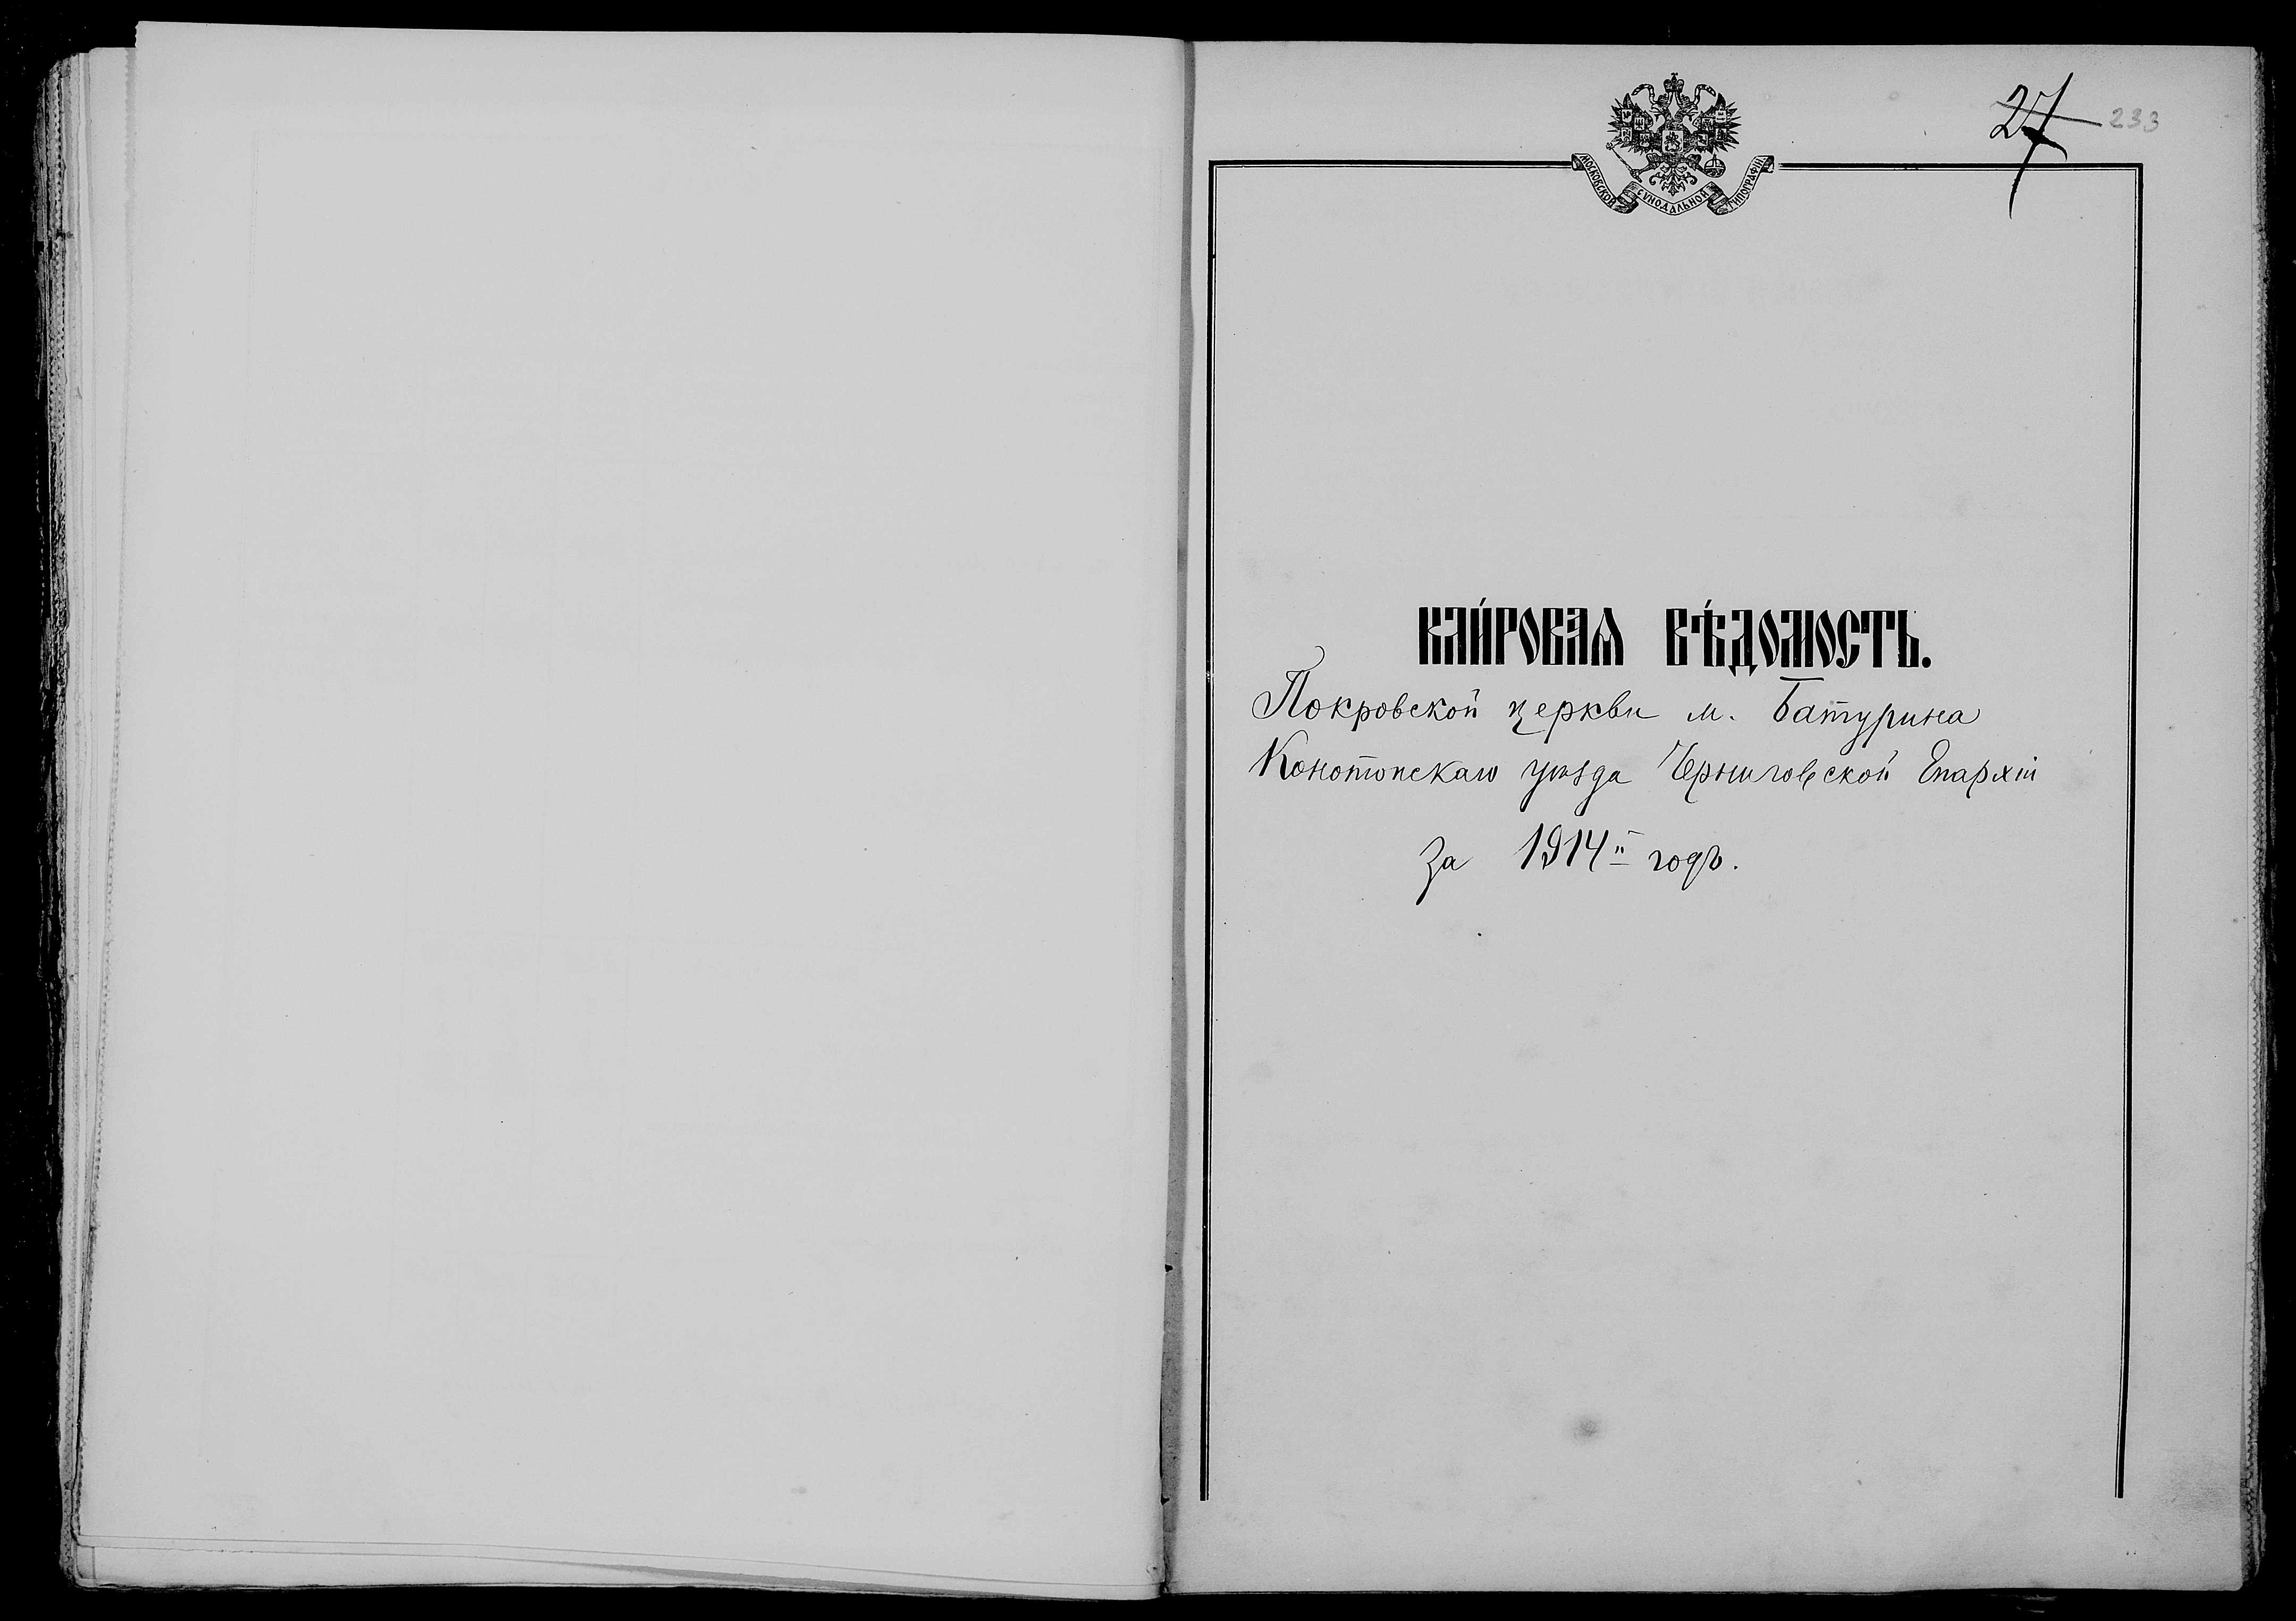 27 233
МОСКОВСКОЙ СѴНОДАЛЬНОЙ ТИПОГРАФІИ
КЛИ́РОВАѦ ВѢ́ДОМОСТЬ.
Покровской церкви м. Батурина
Конотопскаго уѣзда Черниговской Епархіи
за 1914й годъ.